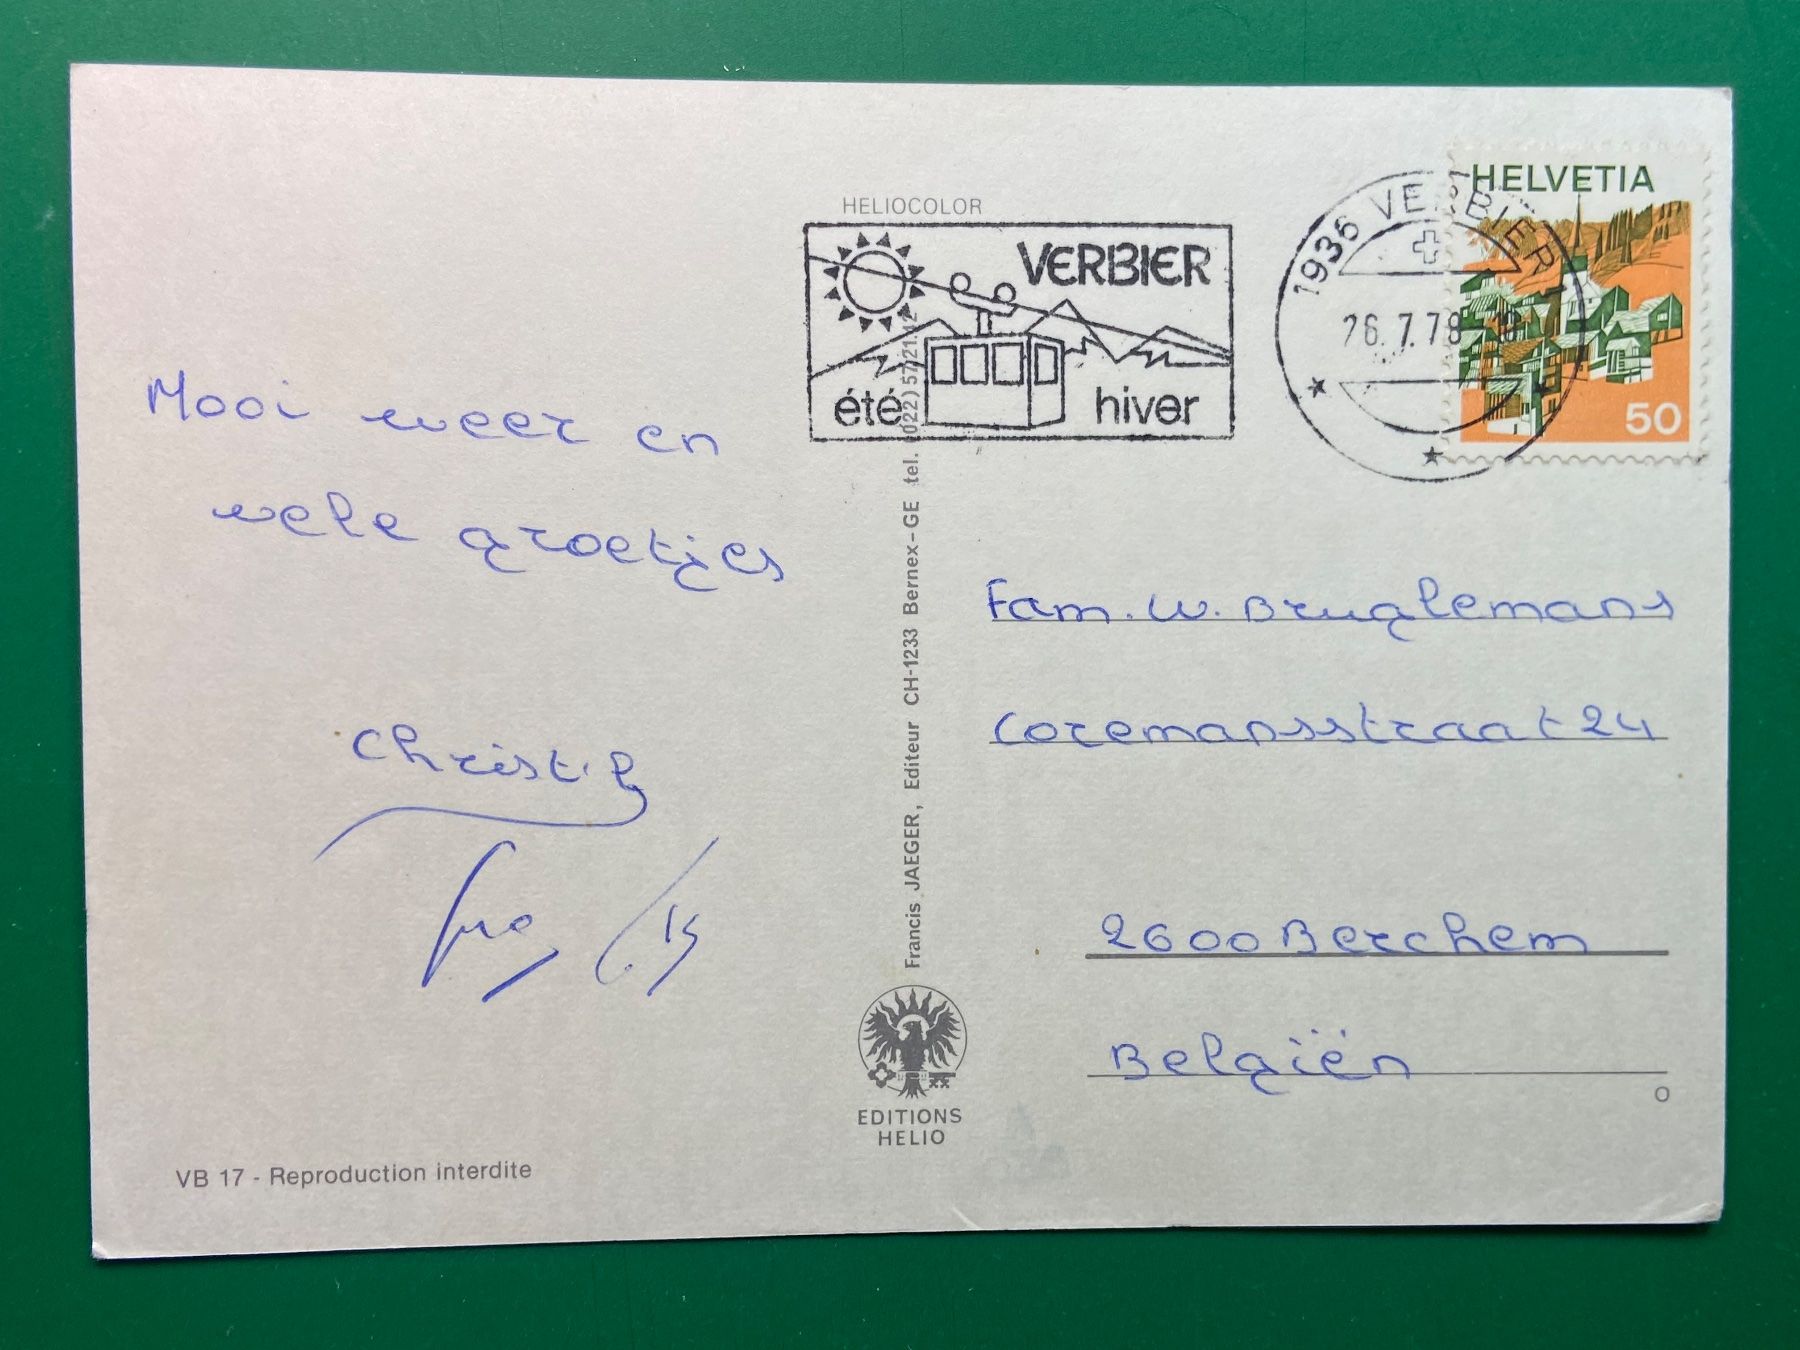 HELIOCOLOR
VERBIER
été hiver
1936 VERBIER 1
26.7.78
HELVETIA
50
Mooi weer en
vele groetjes
Fam. W. Bruglemans
Coremansstraat 24
2600 Berchem
Belgïën
Francis JAEGER, Editeur CH-1233 Bernex-GE tel. (022) 57 21 12
EDITIONS
HELIO
VB 17 - Reproduction interdite